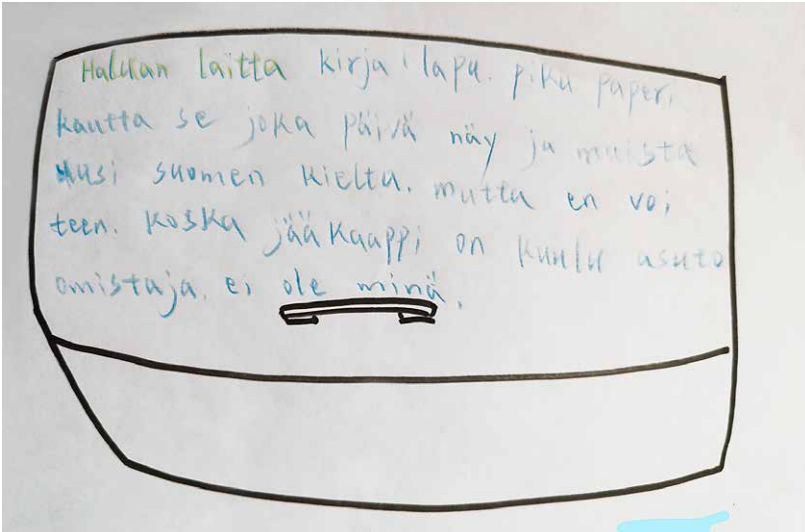 Halukan laitta kirja lapu. piku paper,
kautta se joka päivä näy ja muista
uusi suomen kielta. mutta en voi
teen. koska jääkaappi on kuulu asuto
omistaja. ei ole minä.